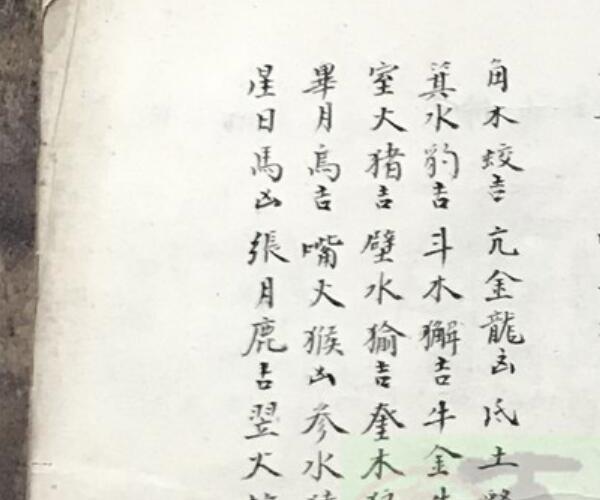 角木蛟吉亢金龍凶氐土
箕水豹吉斗木獬吉牛金牛
室火猪吉壁水㺄吉奎木狼
畢月烏吉嘴火猴凶參水猿
星日馬凶張月鹿吉翌火